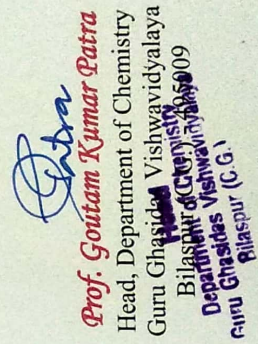 Patra
Prof. Goutam Kumar Patra
Head, Department of Chemistry
Guru Ghasidas Vishwavidyalaya
Bilaspur (C.G.) - 495009
Head
Department of Chemistry
Guru Ghasidas Vishwavidyalaya
Bilaspur (C.G.)